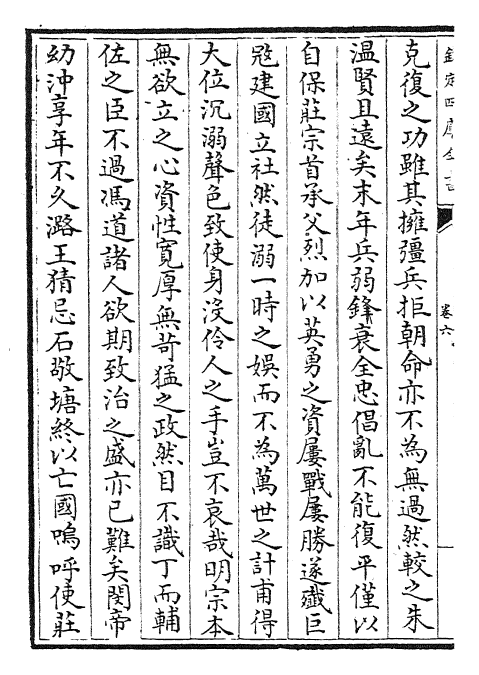 欽定四庫全書
卷六
克復之功雖其擁彊兵拒朝命亦不為無過然較之朱
温賢且遠矣末年兵弱鋒衰全忠倡亂不能復平僅以
自保莊宗首承父烈加以英勇之資屢戰屢勝遂殲巨
㓂建國立社然徒溺一時之娛而不為萬世之計甫得
大位沉溺聲色致使身沒伶人之手豈不哀哉明宗本
無欲立之心資性寛厚無苛猛之政然目不識丁而輔
佐之臣不過馮道諸人欲期致治之盛亦已難矣閔帝
幼沖享年不久潞王猜忌石敬塘終以亡國嗚呼使莊